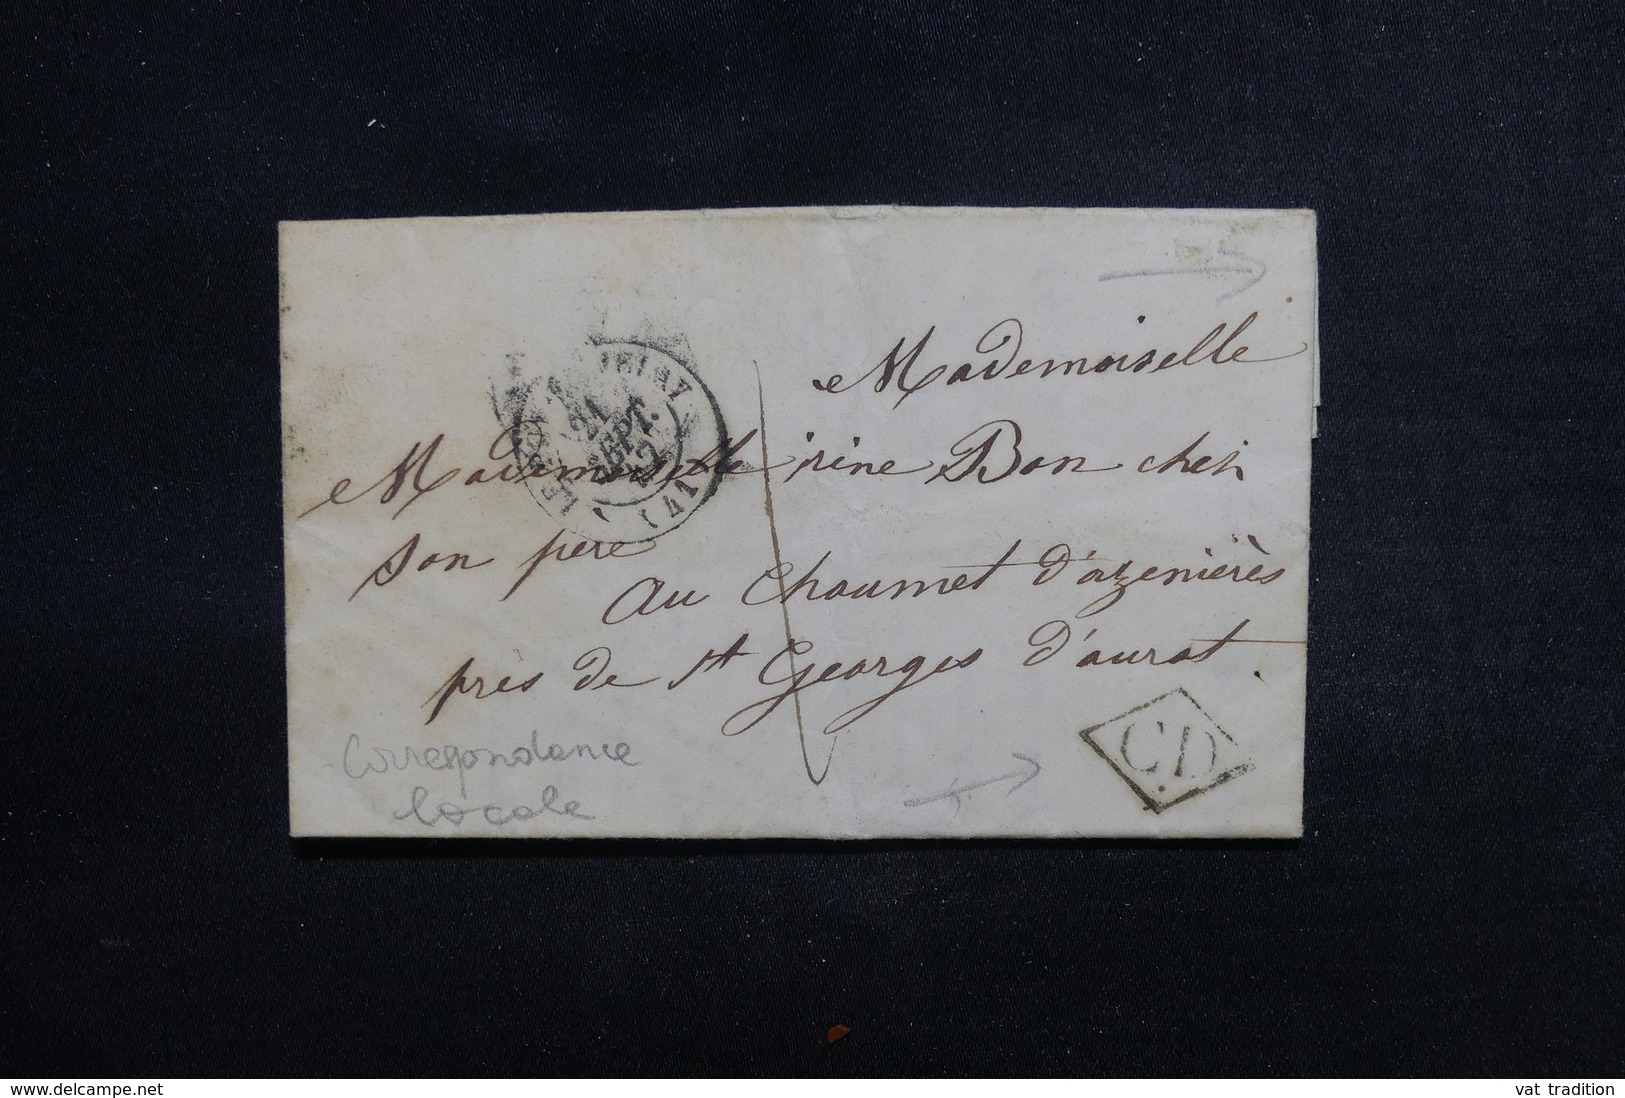 Mademoiselle
Mademoiselle irine Bon chez
son père
au Chaumet d'azenières
près de st Georges d'aurat
21
SEPT.
(41)
C.D
Correspondance
locale
www.delcampe.net
vat tradition